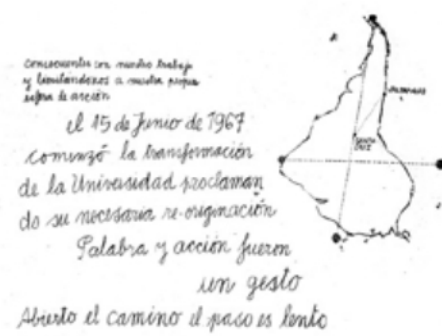 consecuentes con nuestro trabajo
y limitándonos a nuestra propia
esfera de acción
el 15 de Junio de 1967
comenzó la transformación
de la Universidad proclaman
do su necesaria re-originación
Palabra y acción fueron
un gesto
Abierto el camino el paso es lento
SANTA
CRUZ